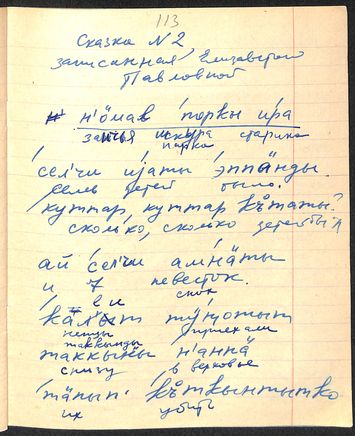 113
Сказка N2
записанная Елизаветой
Павловной
н'öмав порӄы ира
заячья шкура старика
парка
сел'чи ијаты эппäнды.
семь детей было.
куттар, куттар къ̊таты?
сколько, сколько детей был
ай сел'чи амнäты
и 7 невесток.
сноп
кäл'ыт тӱӈотыт
ненцы приехали
таккынды
таккыны н'аннä
снизу в верховье
тäпып къ̊ткынтытко
их убить